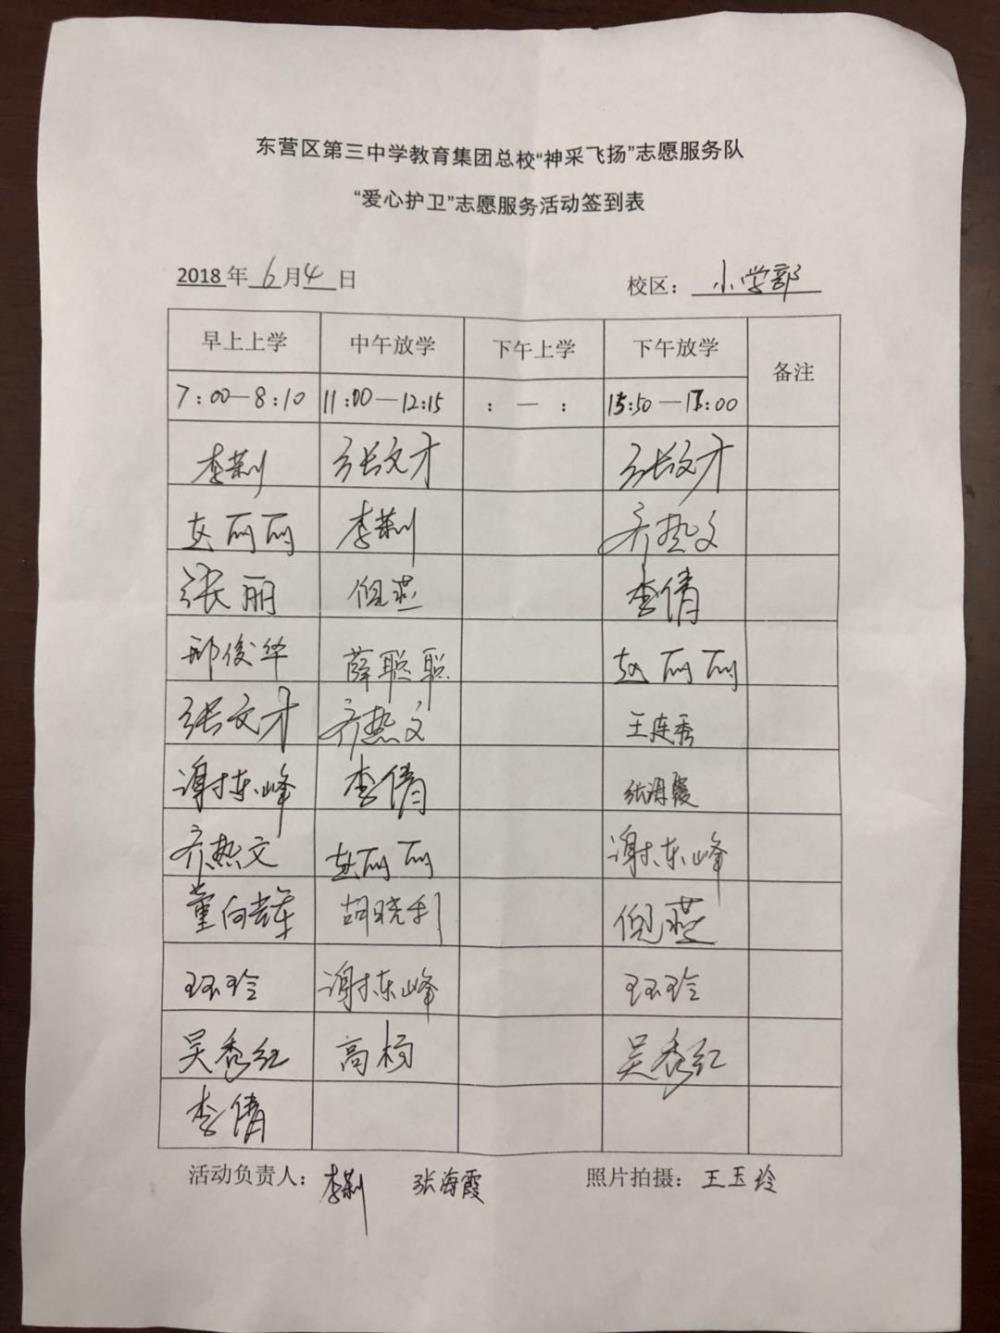 东营区第三中学教育集团总校“神采飞扬”志愿服务队
“爱心护卫”志愿服务活动签到表
2018 年 6 月 4 日 校区： 小学部
早上上学 中午放学 下午上学 下午放学 备注
7:00—8:10 11:00—12:15 : — : 15:50—18:00
李荣利 张文才 张文才
赵丽丽 李荣利 齐热文
张丽 倪燕 李倩
邢俊华 薛聪聪 赵丽丽
张文才 齐热文 王连秀
谢东峰 李倩 张海霞
齐热文 赵丽丽 谢东峰
董向辉 胡晓利 倪燕
王玉玲 谢东峰 王玉玲
吴秀红 高杨 吴秀红
李倩
活动负责人： 李荣利 张海霞 照片拍摄： 王玉玲